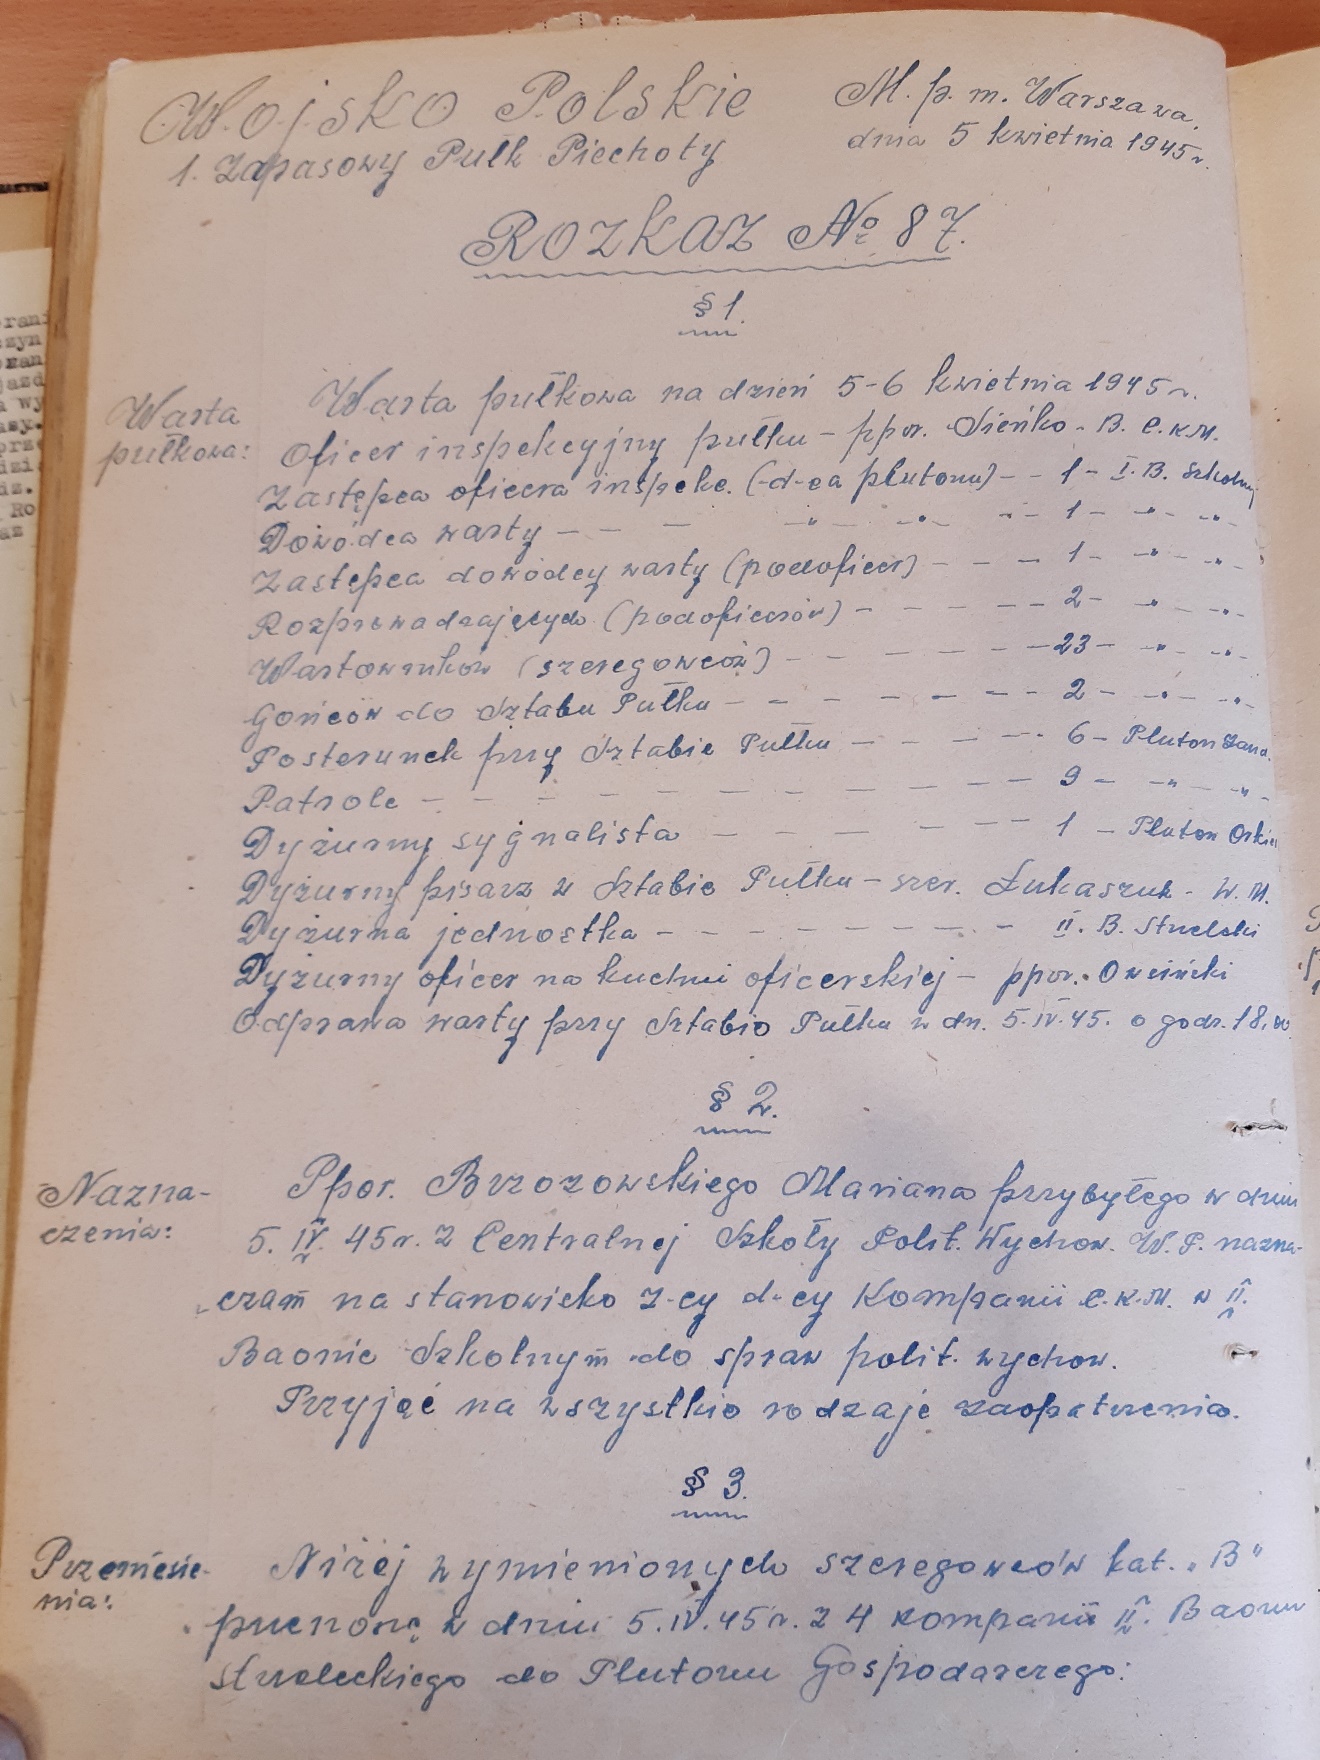 Wojsko Polskie
1. Zapasowy Pułk Piechoty
M. p. m. Warszawa,
dnia 5 kwietnia 1945 r.
ROZKAZ No 87.
§ 1.
Warta
pułkowa:
Warta pułkowa na dzień 5-6 kwietnia 1945 r.
Oficer inspekcyjny pułku – ppor. Sieńko - B. C.K.M.
Zastępca oficera inspekc. (d-ca plutonu) – – 1 – I. B. Szkolny
Dowódca warty – – – " – " – " – 1 – " – " –
Zastępca dowódcy warty (podoficer) – – – 1 – " – " –
Rozprowadzających (podoficerów) – – – – – 2 – " – " –
Wartowników (szeregowców) – – – – – – 23 – " – " –
Gońców do Sztabu Pułku – – – – – – – 2 – " – " –
Posterunek przy Sztabie Pułku – – – – – 6 – Pluton Żand.
Patrole – – – – – – – – – – – 9 – " – " –
Dyżurny sygnalista – – – – – – – 1 – Pluton
Dyżurny pisarz w Sztabie Pułku – szer. Łukaszuk - W. M.
Dyżurna jednostka – – – – – – – – II. B. Strzelski
Dyżurny oficer na kuchni oficerskiej – ppor. Owsiński
Odprawa warty przy Sztabie Pułku w dn. 5.IV.45. o godz. 18,00
§ 2.
Nazna-
czenia:
Ppor. Brzozowskiego Mariana przybyłego w dniu
5. IV. 45 r. z Centralnej Szkoły Polit. Wychow. W. P. nazna-
czam na stanowisko z-cy d-cy Kompanii C.K.M. w II.
Baonie Szkolnym do spraw polit. wychow.
Przyjąć na wszystkie rodzaje zaopatrzenia.
§ 3.
Przeniesie-
nia:
Niżej wymienionych szeregowców kat. „B"
przenoszę w dniu 5.IV.45 r. z 4 kompanii II. Baonu
strzeleckiego do Plutonu Gospodarczego: